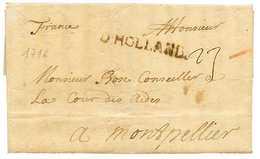 France Monsieur
D'HOLLANDE 23
1716
Monsieur Bose Conseiller a
La Cour des Aides
a montpellier